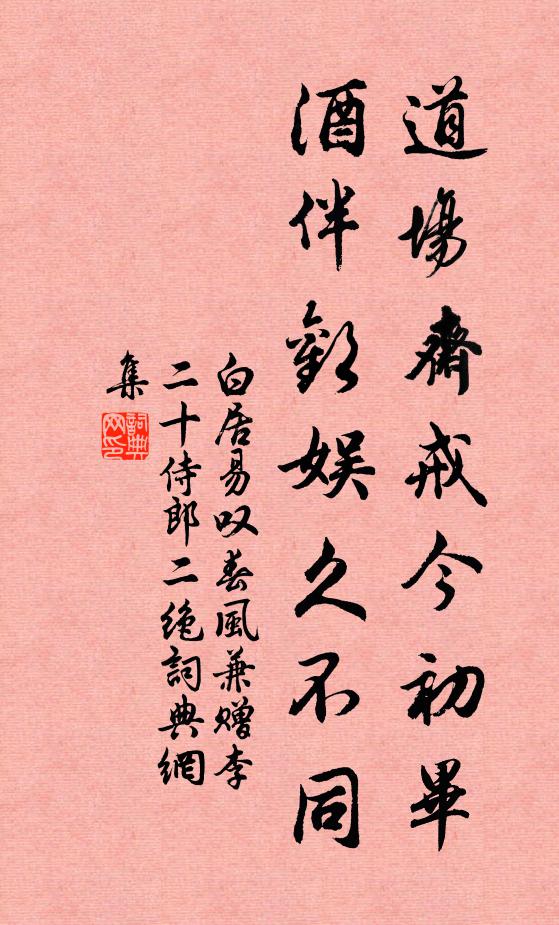 道場齋戒今初畢
酒伴歡娱久不同
白居易叹春風兼赠李
二十侍郎二绝詞典網
集
詞典
网印